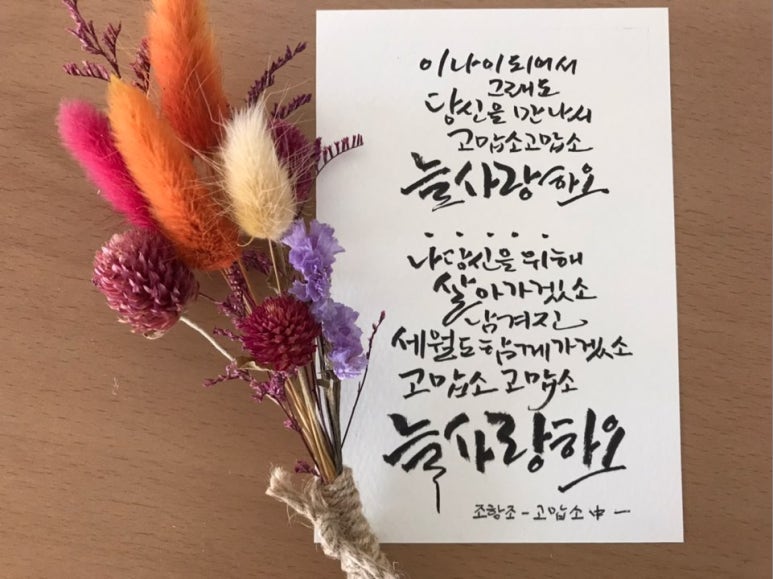 이 나이 되어서
그래도
당신을 만나서
고맙소 고맙소
늘 사랑하오
· · · · · ·
나 당신을 위해
살아가겠소
남겨진
세월도 함께 가겠소
고맙소 고맙소
늘 사랑하오
조항조 - 고맙소 中 -